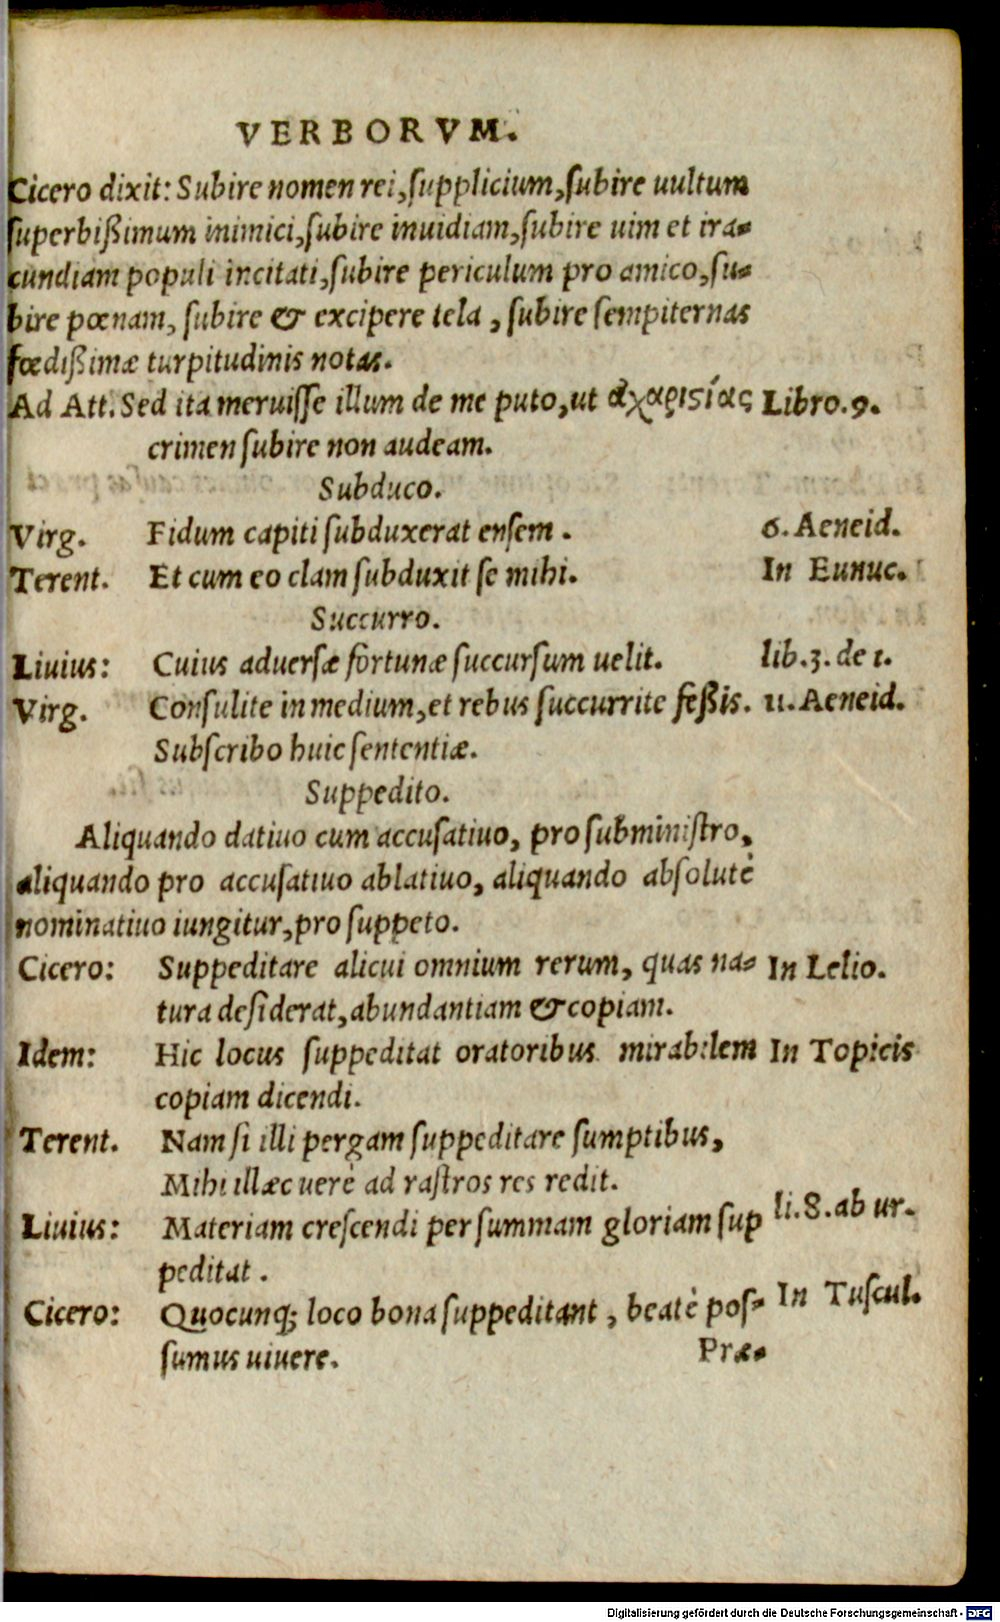 VERBORVM.
Cicero dixit: Subire nomen rei, ſupplicium, ſubire uultum
ſuperbißimum inimici, ſubire inuidiam, ſubire uim et ira-
cundiam populi incitati, ſubire periculum pro amico, ſu-
bire pœnam, ſubire & excipere tela, ſubire ſempiternas
fœdißimæ turpitudinis notas.
Ad Att. Sed ita meruiſſe illum de me puto, ut ἀχαριϛίας Libro.9.
crimen ſubire non audeam.
Subduco.
Virg. Fidum capiti ſubduxerat enſem. 6. Aeneid.
Terent. Et cum eo clam ſubduxit ſe mihi. In Eunuc.
Succurro.
Liuius: Cuius aduerſæ fortunæ ſuccurſum uelit. lib.3. de 1.
Virg. Conſulite in medium, et rebus ſuccurrite feßis. 11. Aeneid.
Subſcribo huic ſententiæ.
Suppedito.
Aliquando datiuo cum accuſatiuo, pro ſubminiſtro,
aliquando pro accuſatiuo ablatiuo, aliquando abſolutè
nominatiuo iungitur, pro ſuppeto.
Cicero: Suppeditare alicui omnium rerum, quas na- In Lelio.
tura deſiderat, abundantiam & copiam.
Idem: Hic locus ſuppeditat oratoribus mirabilem In Topicis
copiam dicendi.
Terent. Nam ſi illi pergam ſuppeditare ſumptibus,
Mihi illæc uerè ad raſtros res redit.
Liuius: Materiam creſcendi per ſummam gloriam ſup li. 8. ab ur.
peditat.
Cicero: Quocunq; loco bona ſuppeditant, beatè poſ- In Tuſcul.
ſumus uiuere.
Præ-
Digitalisierung gefördert durch die Deutsche Forschungsgemeinschaft - DFG